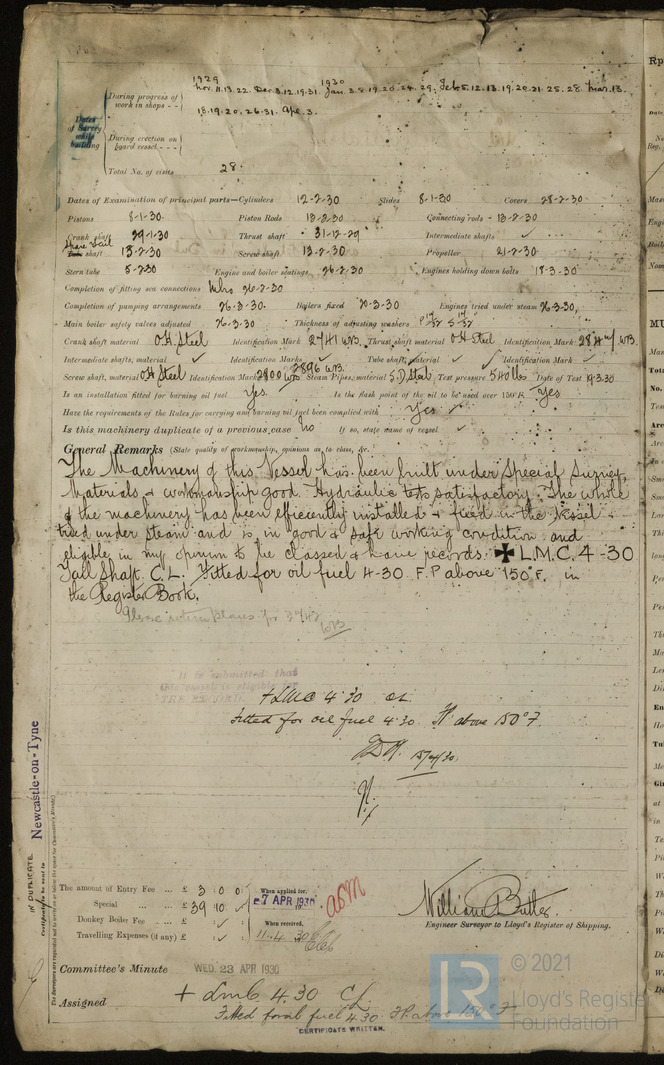 1929 1930
During progress of work in shops - - Nov. 11.13.22. Dec. 3.12.19.31. Jan. 3.8.19.20.24.29. Feb 5.12.13.19.20.21.25.28. Mar. 13.
18.19.20.26.31. Apr. 3.
Dates of Survey while building
During erection on board vessel - - -
Total No. of visits 28.
Dates of Examination of principal parts—Cylinders 12-2-30 Slides 8-1-30 Covers 28-2-30
Pistons 8-1-30 Piston Rods 13-2-30 Connecting rods - 13-2-30
Crank shaft 29-1-30 Thrust shaft 31-12-29 Intermediate shafts ✓
Spare Tail shaft 13-2-30 Screw shaft 13-2-30 Propeller 21-2-30
Stern tube 5-2-30 Engine and boiler seatings 26-2-30 Engines holding down bolts 18-3-30
Completion of fitting sea connections 26-2-30
Completion of pumping arrangements 26-3-30 Boilers fixed 20-3-30 Engines tried under steam 26-3-30
Main boiler safety valves adjusted 26-3-30 Thickness of adjusting washers
Crank shaft material O H Steel Identification Mark 2741 WB. Thrust shaft material O H Steel Identification Mark 2847 WB.
Intermediate shafts, material ✓ Identification Marks ✓ Tube shaft, material ✓ Identification Mark ✓
2896 WB.
Screw shaft, material O H Steel Identification Mark 2900 WB Steam Pipes, material S.D. Steel Test pressure 540 lbs Date of Test 19-3-30
Is an installation fitted for burning oil fuel Yes Is the flash point of the oil to be used over 150°F. Yes
Have the requirements of the Rules for carrying and burning oil fuel been complied with Yes ✓
Is this machinery duplicate of a previous case No If so, state name of vessel ✓
General Remarks (State quality of workmanship, opinions as to class, &c.
The Machinery of this Vessel has been built under Special Survey,
Materials & workmanship good. Hydraulic tests satisfactory. The whole
of the machinery has been efficiently installed & fixed in the Vessel &
tried under steam and is in good & safe working condition and
eligible in my opinion to be classed & have records. ✠ L.M.C. 4-30
Tail Shaft. C.L. Fitted for oil fuel 4-30. F.P above 150°F. in
the Register Book.
Please return plans for
WB
It is submitted that
this vessel is eligible for
THE RECORD.
+ LMC 4.30 CL
Fitted for oil fuel 4.30. FP above 150°F.
Newcastle-on-Tyne
IN DUPLICATE
Certificate to be sent to
The amount of Entry Fee ... £ 3 : 0 : 0 When applied for,
Special ... £ 39 : 10 : 7 APR 1930
Donkey Boiler Fee ... £ : ✓ : When received,
Travelling Expenses (if any) £ : ✓ : 11.4.30
William Butler
Engineer Surveyor to Lloyd's Register of Shipping.
Committee's Minute WED. 23 APR 1930
Assigned + LMC 4.30 CL
Fitted for oil fuel 4.30. FP. above 150°F
CERTIFICATE WRITTEN.
LR
© 2021
Lloyd's Register
Foundation